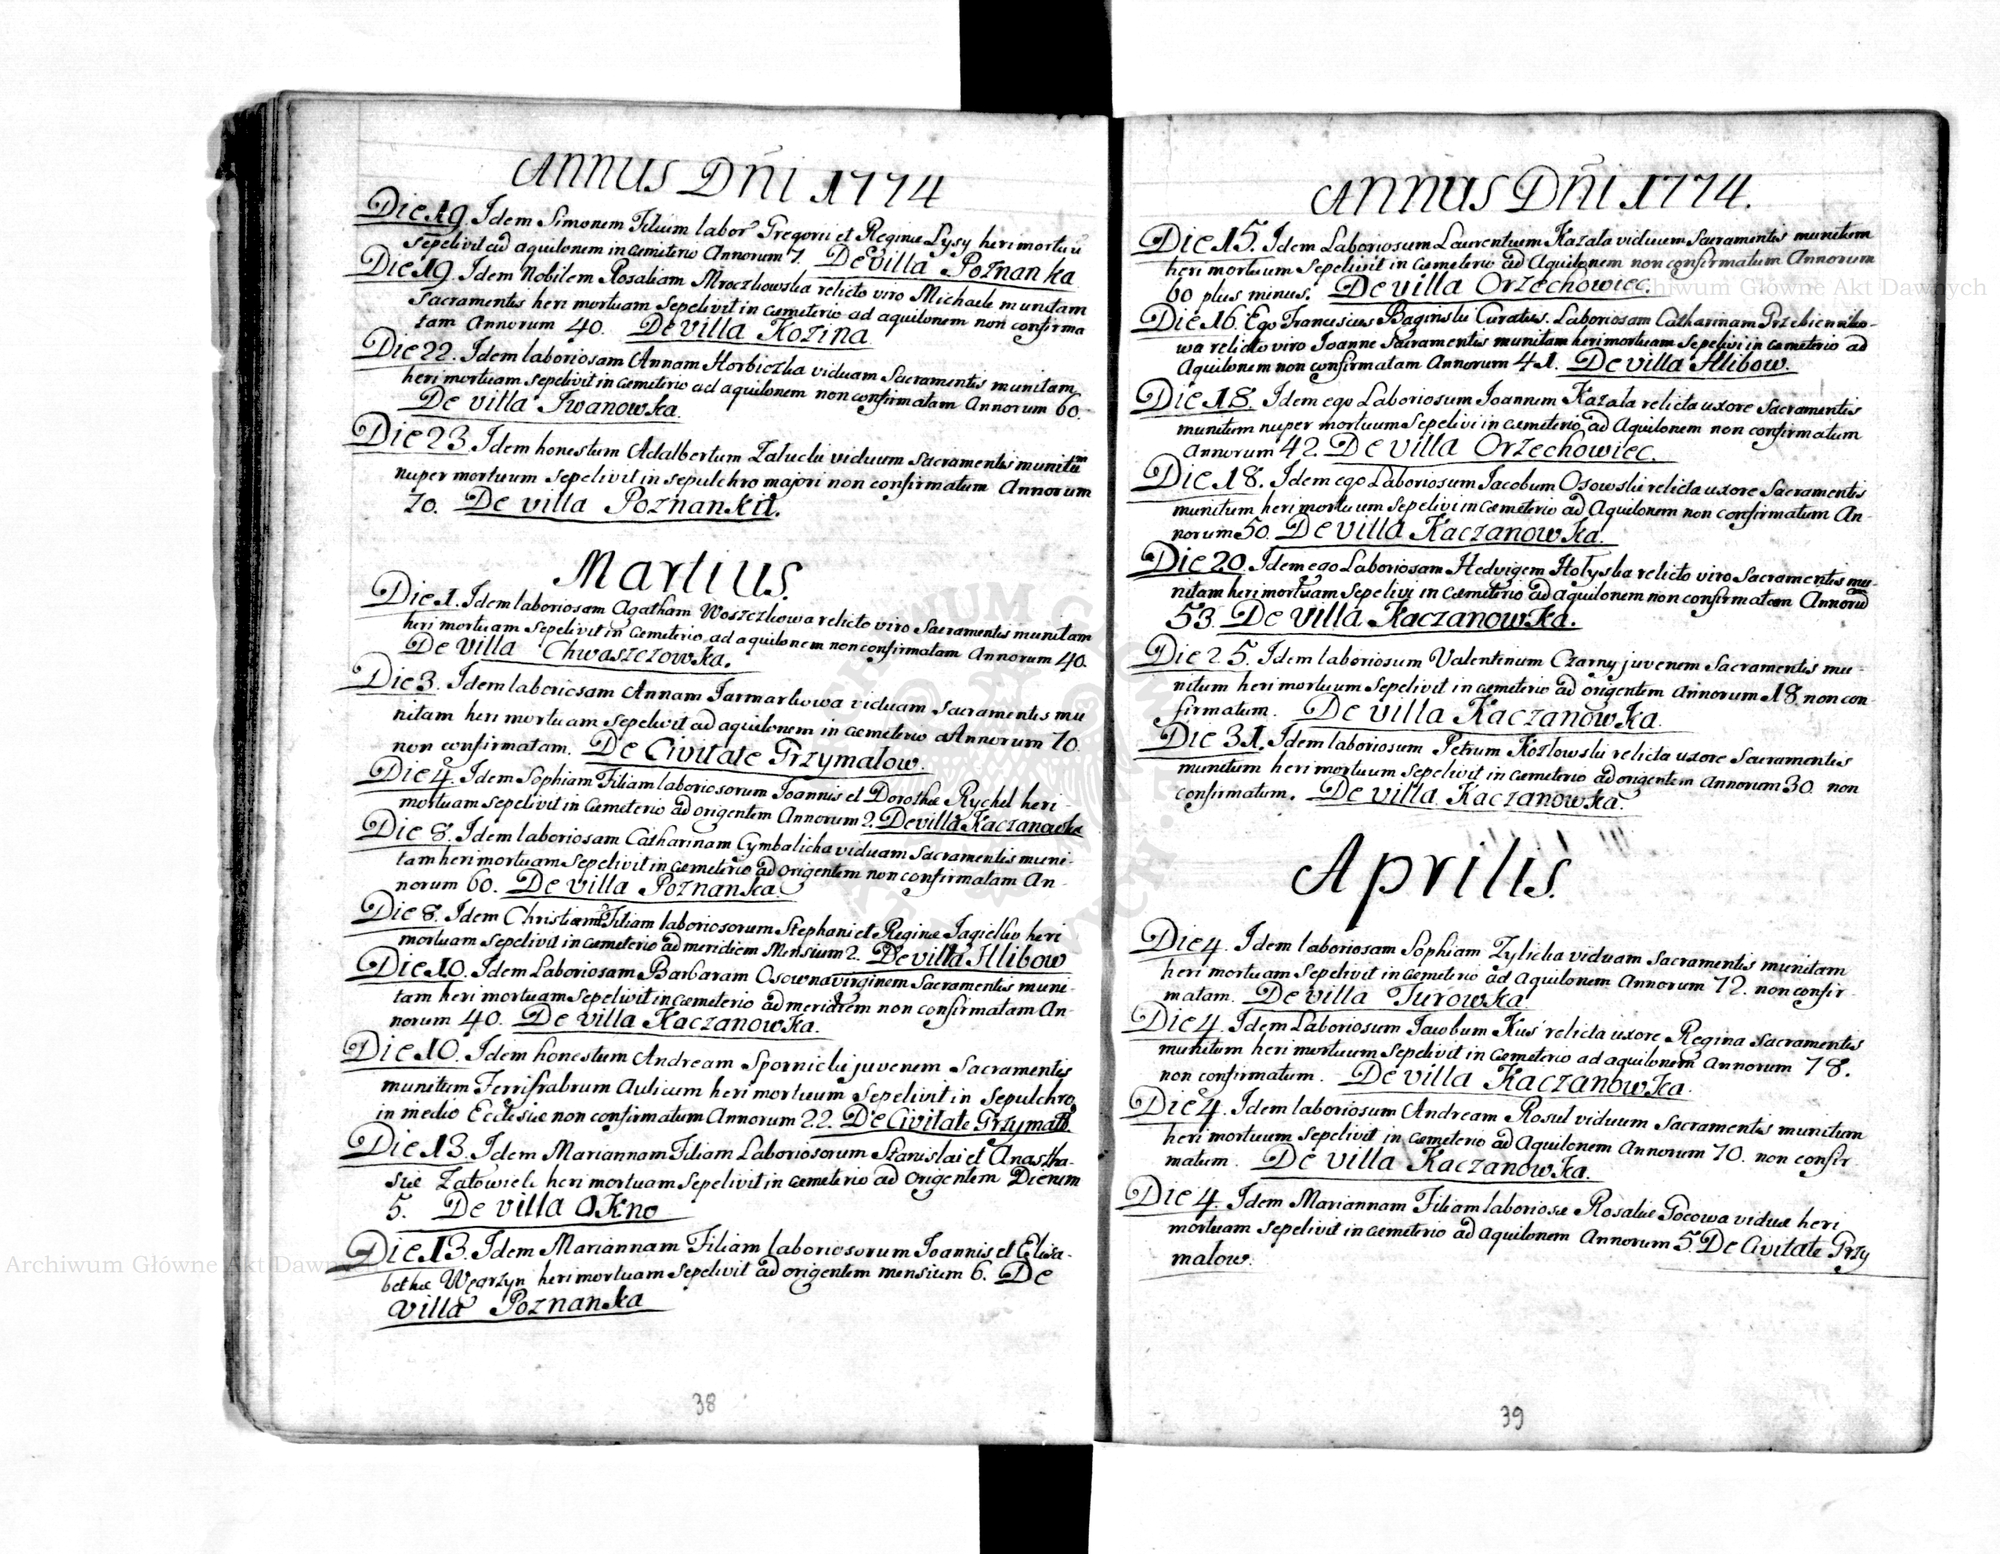 ANNUS Dñi 1774
Die 19. Idem Simonem Filium labor Gregorii et Reginæ Lysy heri mortuũ
sepelivit ad aquilonem in cæmeterio Annorum 7. De villa Poznanka
Die 19. Idem Nobilem Rosaliam Mroczkowska relicto viro Michaele munitam
Sacramentis heri mortuam sepelivit in cæmeterio ad aquilonem non confirma
tam Annorum 40. De villa Kozina
Die 22. Idem laboriosam Annam Horbiczka viduam Sacramentis munitam
heri mortuam sepelivit in cæmeterio ad aquilonem non confirmatam Annorum 60.
De villa Iwanowka.
Die 23. Idem honestum Adalbertum Zalucki viduum Sacramentis munitũm
nuper mortuum sepelivit in sepulchro majori non confirmatum Annorum
70. De villa Poznanka.
Martius.
Die 1. Idem laboriosam Agatham Woszczkowa relicto viro Sacramentis munitam
heri mortuam sepelivit in cæmeterio ad aquilonem non confirmatam Annorum 40.
De villa Chwaszczowka.
Die 3. Idem laboriosam Annam Jarmarkowa viduam Sacramentis mu
nitam heri mortuam sepelivit ad aquilonem in cæmeterio Annorum 70.
non confirmatam. De Civitate Grzymalow.
Die 4. Idem Sophiam Filiam laboriosorum Joannis et Dorotheæ Rychel heri
mortuam sepelivit in cæmeterio ad origentem Annorum 2. De villa Kaczanowka
Die 8. Idem laboriosam Catharinam Cymbalicha viduam Sacramentis muni-
tam heri mortuam sepelivit in cæmeterio ad origentem non confirmatam An-
norum 60. De villa Poznanka.
Die 8. Idem Filiam laboriosorum Stephani et Reginæ Jagiellow heri
mortuam sepelivit in cæmeterio ad meridiem Mensium 2. De villa Hlibow
Die 10. Idem Laboriosam Barbaram Osowna virginem Sacramentis muni-
tam heri mortuam sepelivit in cæmeterio ad meridiem non confirmatam An-
norum 40. De villa Kaczanowka.
Die 10. Idem honestum Andream Spornicki juvenem Sacramentis
munitum Ferrifabrum Aulicum heri mortuum sepelivit in sepulchro
in medio Ecclesiæ non confirmatum Annorum 22. De Civitate Grzymalo.
Die 13. Idem Mariannam Filiam Laboriosorum Stanislai et Anastha-
siæ heri mortuam sepelivit in cæmeterio ad origentem Dierum
5. De villa Okno
Die 13. Idem Mariannam Filiam laboriosorum Joannis et Elisa-
bethæ Węgrzyn heri mortuam sepelivit ad origentem mensium 6. De
villa Poznanka
38
ANNUS Dñi 1774.
Die 15. Idem Laboriosum Laurentium Kazala viduum Sacramentis munitum
heri mortuum sepelivit in cæmeterio ad Aquilonem non confirmatum Annorum
60 plus minus. De villa Orzechowiec.
Die 16. Ego Franciscus Baginski Curatus. Laboriosam Catharinam Przebienniko-
wa relicto viro Joanne Sacramentis munitam heri mortuam sepelivi in cæmeterio ad
Aquilonem non confirmatam Annorum 41. De villa Hlibow.
Die 18. Idem ego Laboriosum Joannem Kazala relicta uxore Sacramentis
munitum nuper mortuum sepelivi in cæmeterio ad Aquilonem non confirmatum
Annorum 42. De villa Orzechowiec.
Die 18. Idem ego Laboriosum Jacobum Osowski relicta uxore Sacramentis
munitum heri mortuum sepelivi in cæmeterio ad Aquilonem non confirmatum An-
norum 50. De villa Kaczanowka.
Die 20. Idem ego Laboriosam Hedvigem Holyska relicto viro Sacramentis mu-
nitam heri mortuam sepelivi in cæmeterio ad aquilonem non confirmatam Annorũ
53. De villa Kaczanowka.
Die 25. Idem laboriosum Valentinum Czarny juvenem Sacramentis mu-
nitum heri mortuum sepelivit in cæmeterio ad origentem Annorum 18. non con
firmatum. De villa Kaczanowka.
Die 31. Idem laboriosum Petrum Kozlowski relicta uxore Sacramentis
munitum heri mortuum sepelivit in cæmeterio ad origentem Annorum 30. non
confirmatum. De villa Kaczanowka.
Aprilis.
Die 4. Idem laboriosam Sophiam Zylicha viduam Sacramentis munitam
heri mortuam sepelivit in cæmeterio ad Aquilonem Annorum 72. non confir-
matam. De villa Turowka
Die 4. Idem Laboriosum Jacobum Kus relicta uxore Regina Sacramentis
munitum heri mortuum sepelivit in cæmeterio ad aquilonem Annorum 78.
non confirmatum. De villa Kaczanowka.
Die 4. Idem laboriosum Andream Rosul viduum Sacramentis munitum
heri mortuum sepelivit in cæmeterio ad Aquilonem Annorum 70. non confir-
matum. De villa Kaczanowka.
Die 4. Idem Mariannam Filiam laboriosæ Rosaliæ Gocowa viduæ heri
mortuam sepelivit in cæmeterio ad Aquilonem Annorum 5. De Civitate Grzy
malow.
39
Archiwum Główne Akt Dawnych
Archiwum Główne Akt Dawnych